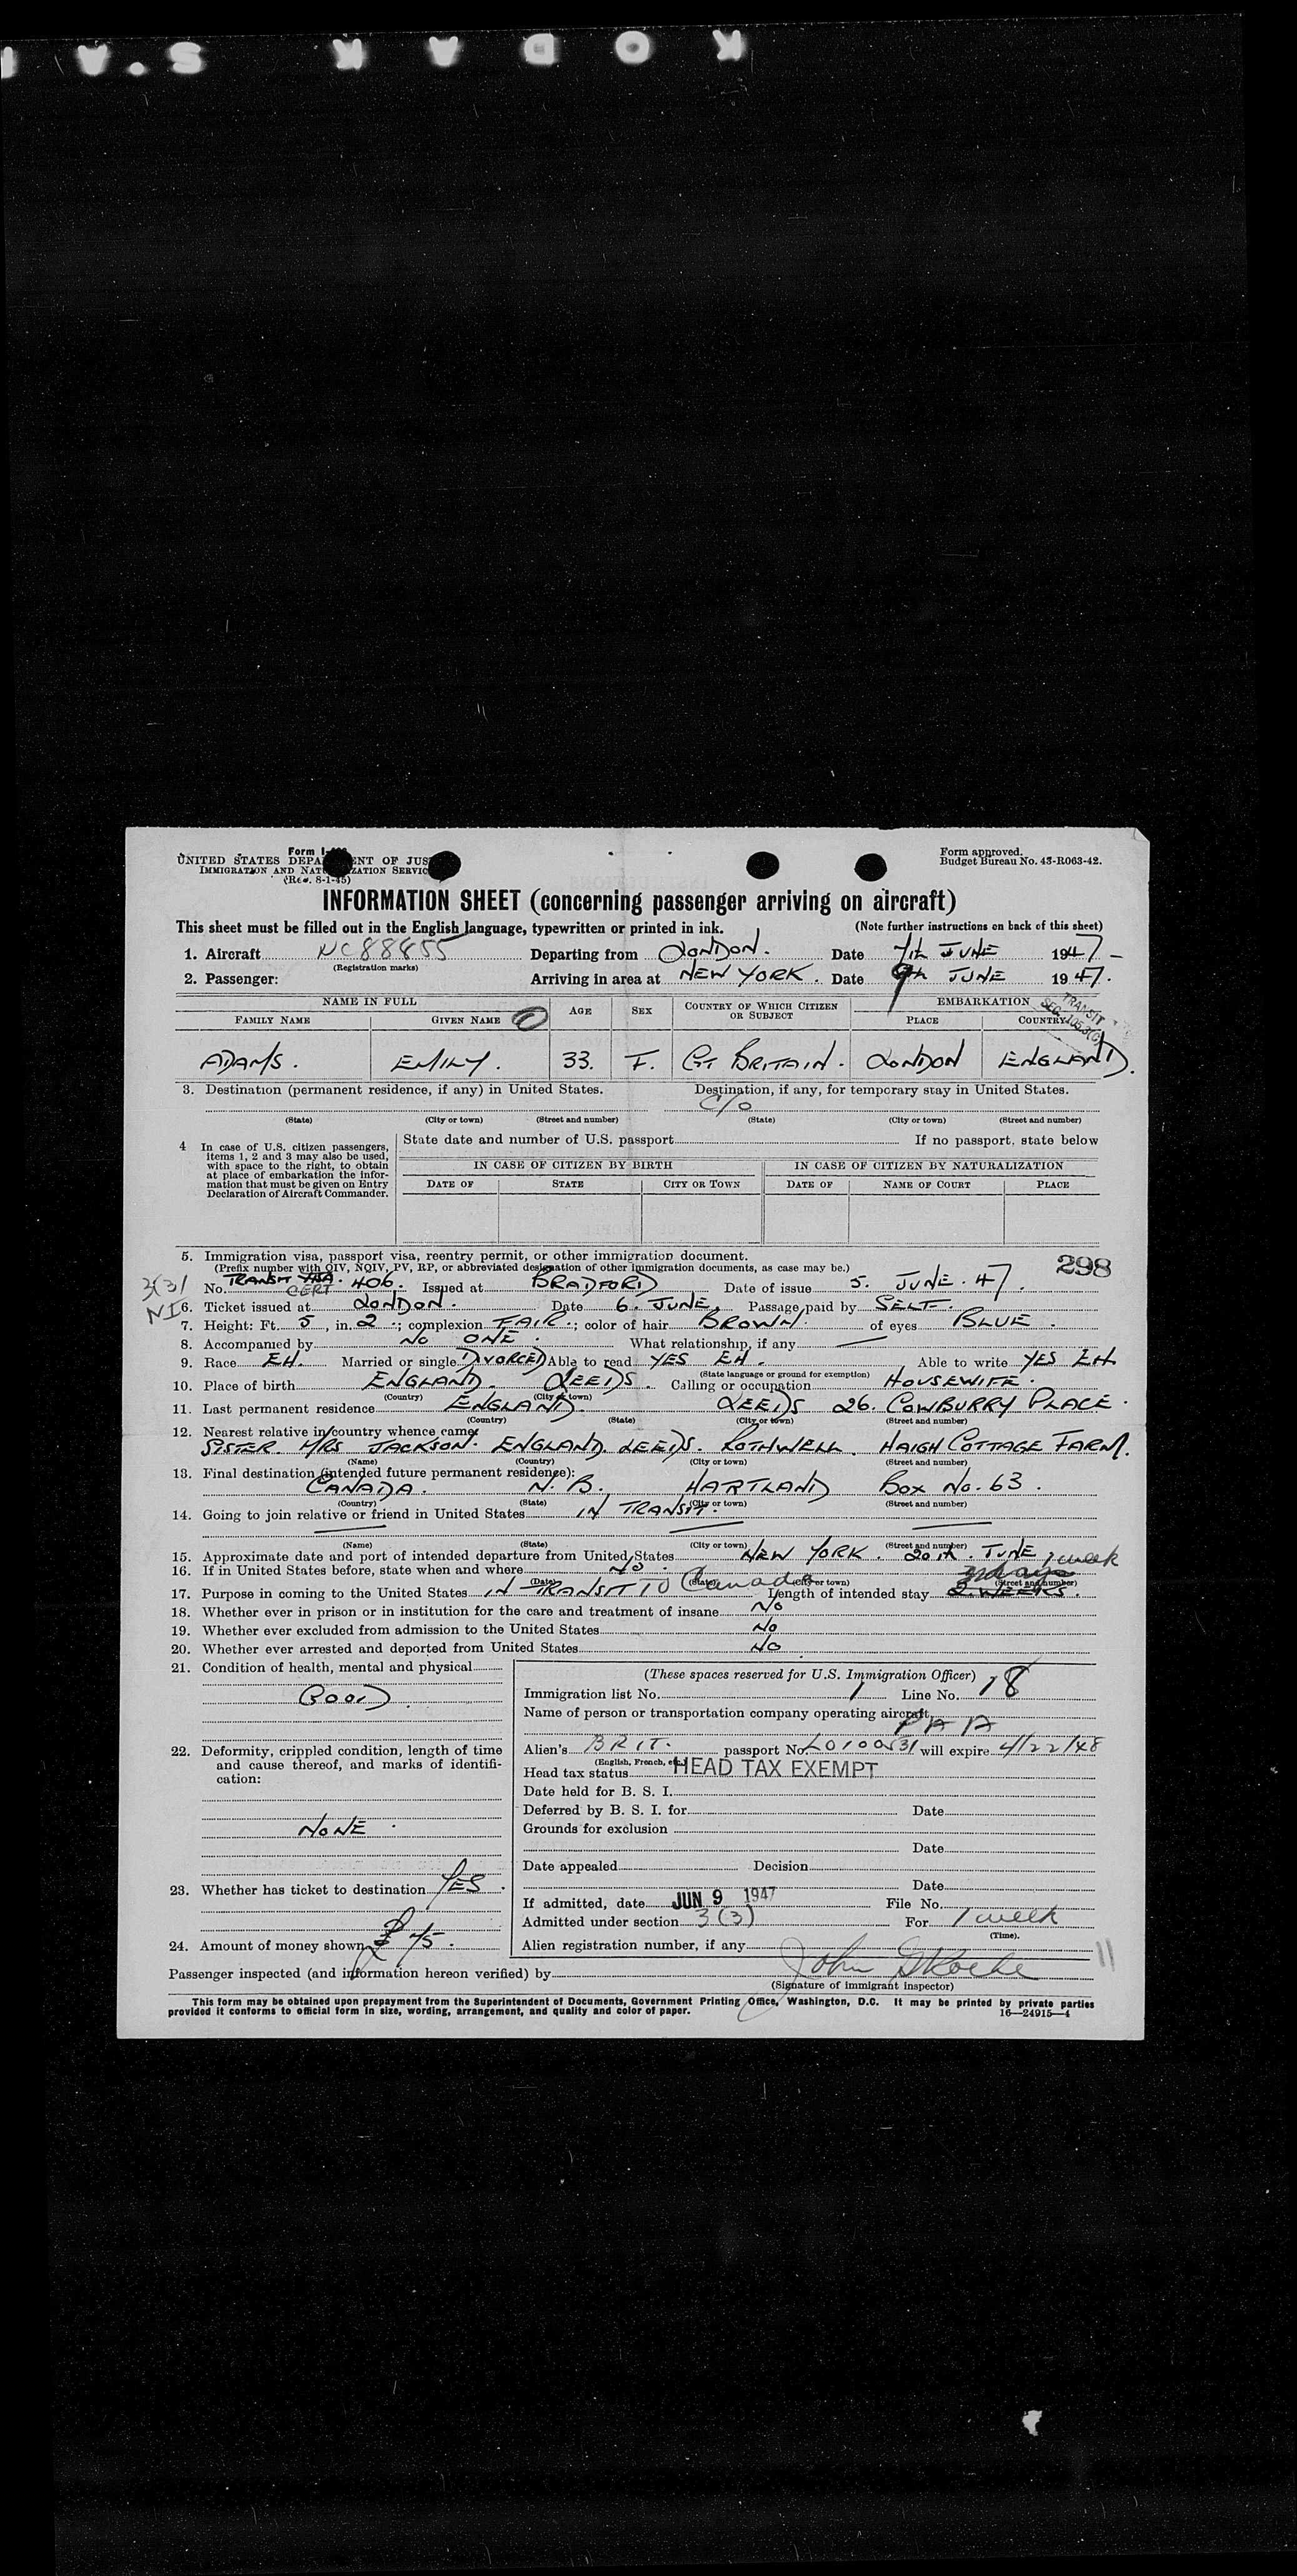 KODAK S.A
Form I-
UNITED STATES DEPA ENT OF JUS
IMMIGRATION AND NAT ZATION SERVIC
(Rev. 8-1-45)
Form approved.
Budget Bureau No. 43-R063-42.
INFORMATION SHEET (concerning passenger arriving on aircraft)
This sheet must be filled out in the English language, typewritten or printed in ink. (Note further instructions on back of this sheet)
1. Aircraft NC88855 Departing from LONDON. Date 7th JUNE 1947-
(Registration marks)
2. Passenger: Arriving in area at NEW YORK. Date 9th JUNE 1947.
NAME IN FULL AGE SEX COUNTRY OF WHICH CITIZEN OR SUBJECT EMBARKATION
FAMILY NAME GIVEN NAME PLACE COUNTRY
TRANSIT
SEC. 105.3(G)
ADAMS. EMILY. 33. F. GT BRITAIN. LONDON ENGLAND.
3. Destination (permanent residence, if any) in United States. Destination, if any, for temporary stay in United States.
C/O
(State) (City or town) (Street and number) (State) (City or town) (Street and number)
4 In case of U.S. citizen passengers, items 1, 2 and 3 may also be used, with space to the right, to obtain at place of embarkation the information that must be given on Entry Declaration of Aircraft Commander.
State date and number of U.S. passport If no passport, state below
IN CASE OF CITIZEN BY BIRTH IN CASE OF CITIZEN BY NATURALIZATION
DATE OF STATE CITY OR TOWN DATE OF NAME OF COURT PLACE
5. Immigration visa, passport visa, reentry permit, or other immigration document. 298
(Prefix number with QIV, NQIV, PV, RP, or abbreviated designation of other immigration documents, as case may be.)
3(3) No. TRANSIT VISA. CERT 406. Issued at BRADFORD Date of issue 5. JUNE. 47.
NI 6. Ticket issued at LONDON. Date 6. JUNE. Passage paid by SELF.
7. Height: Ft. 5, in. 2.; complexion FAIR.; color of hair BROWN. of eyes BLUE.
8. Accompanied by NO ONE. What relationship, if any —
9. Race EH. Married or single DIVORCED Able to read YES EH. Able to write YES EH
(State language or ground for exemption)
10. Place of birth ENGLAND. LEEDS. Calling or occupation HOUSEWIFE.
(Country) (City or town)
11. Last permanent residence ENGLAND. LEEDS 26. COWBURRY PLACE.
(Country) (State) (City or town) (Street and number)
12. Nearest relative in country whence came:
SISTER. MRS JACKSON. ENGLAND. LEEDS. ROTHWELL. HAIGH COTTAGE FARM.
(Name) (Country) (City or town) (Street and number)
13. Final destination (intended future permanent residence):
CANADA. N. B. HARTLAND BOX NO. 63.
(Country) (State) (City or town) (Street and number)
14. Going to join relative or friend in United States IN TRANSIT.
(Name) (State) (City or town) (Street and number)
15. Approximate date and port of intended departure from United States NEW YORK. 20th. JUNE 1 week
16. If in United States before, state when and where NO. 3 days
(Date) (State) (City or town) (Street and number)
17. Purpose in coming to the United States IN TRANSIT TO Canada Length of intended stay 2 WEEKS.
18. Whether ever in prison or in institution for the care and treatment of insane NO
19. Whether ever excluded from admission to the United States NO
20. Whether ever arrested and deported from United States NO
21. Condition of health, mental and physical
GOOD.
22. Deformity, crippled condition, length of time and cause thereof, and marks of identification:
NONE.
23. Whether has ticket to destination YES.
24. Amount of money shown £75.
(These spaces reserved for U.S. Immigration Officer)
Immigration list No. 1 Line No. 18
Name of person or transportation company operating aircraft PAA
Alien's BRIT. passport No. L0100531 will expire 4/22/48
(English, French, etc.)
Head tax status HEAD TAX EXEMPT
Date held for B. S. I.
Deferred by B. S. I. for Date
Grounds for exclusion
Date
Date appealed Decision
Date
If admitted, date JUN 9 1947 File No.
Admitted under section 3(3) For 1 week
(Time).
Alien registration number, if any 11
Passenger inspected (and information hereon verified) by John G Roche
(Signature of immigrant inspector)
This form may be obtained upon prepayment from the Superintendent of Documents, Government Printing Office, Washington, D.C. It may be printed by private parties
provided it conforms to official form in size, wording, arrangement, and quality and color of paper. 16—24915—4